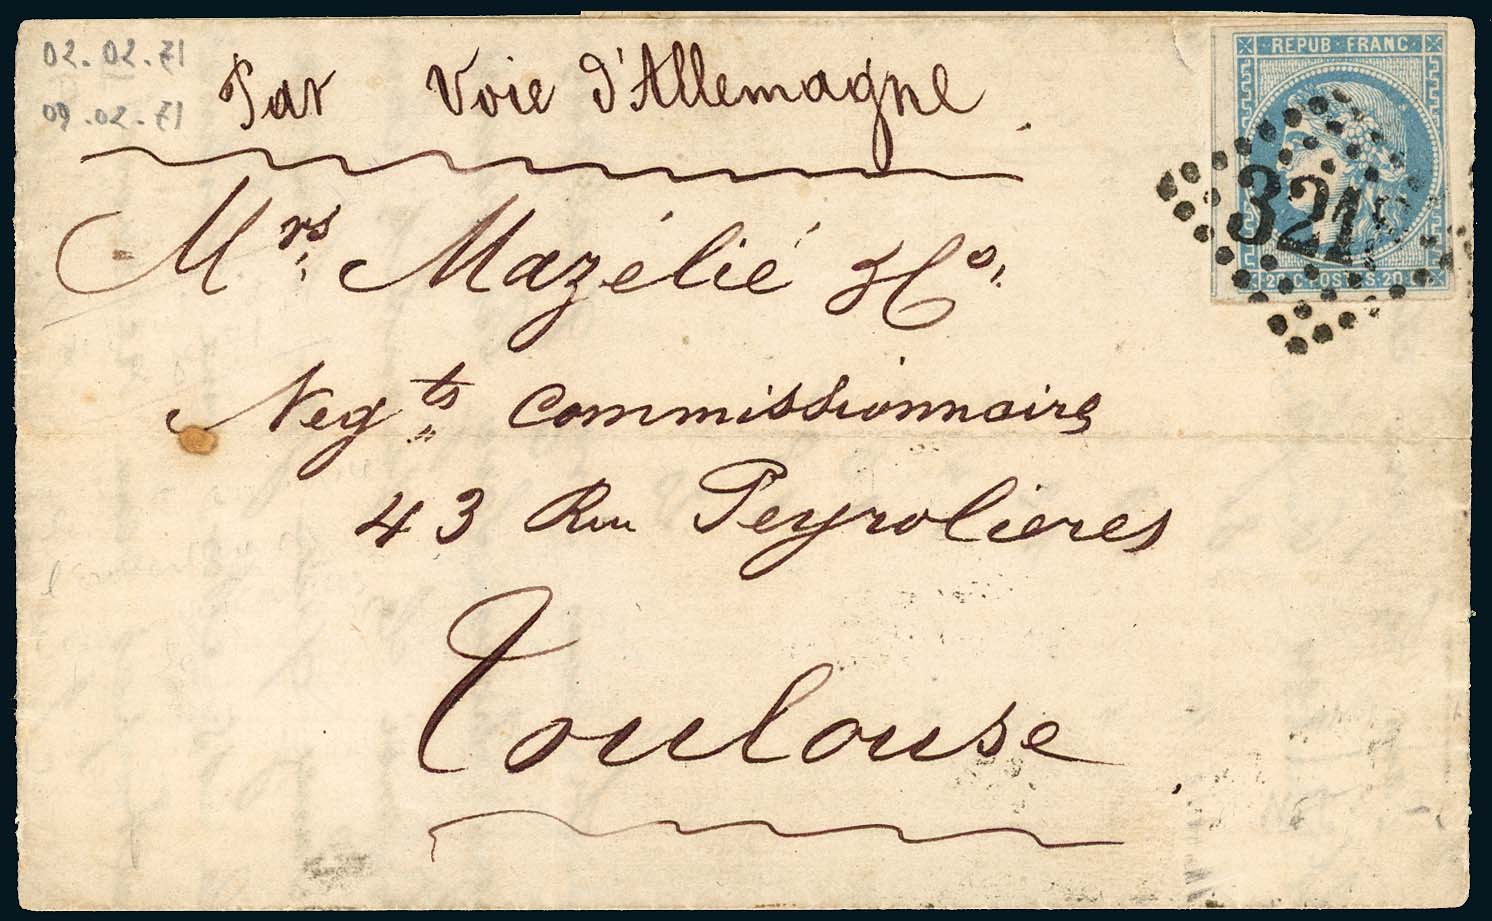 02.02.71
09.02.71
Par Voie d'Allemagne.
REPUB·FRANC
321
20 C POSTES 20 C
Mrs Mazélié & Co,
Negts Commissionnaire
43 Rue Peyrolieres
Toulouse